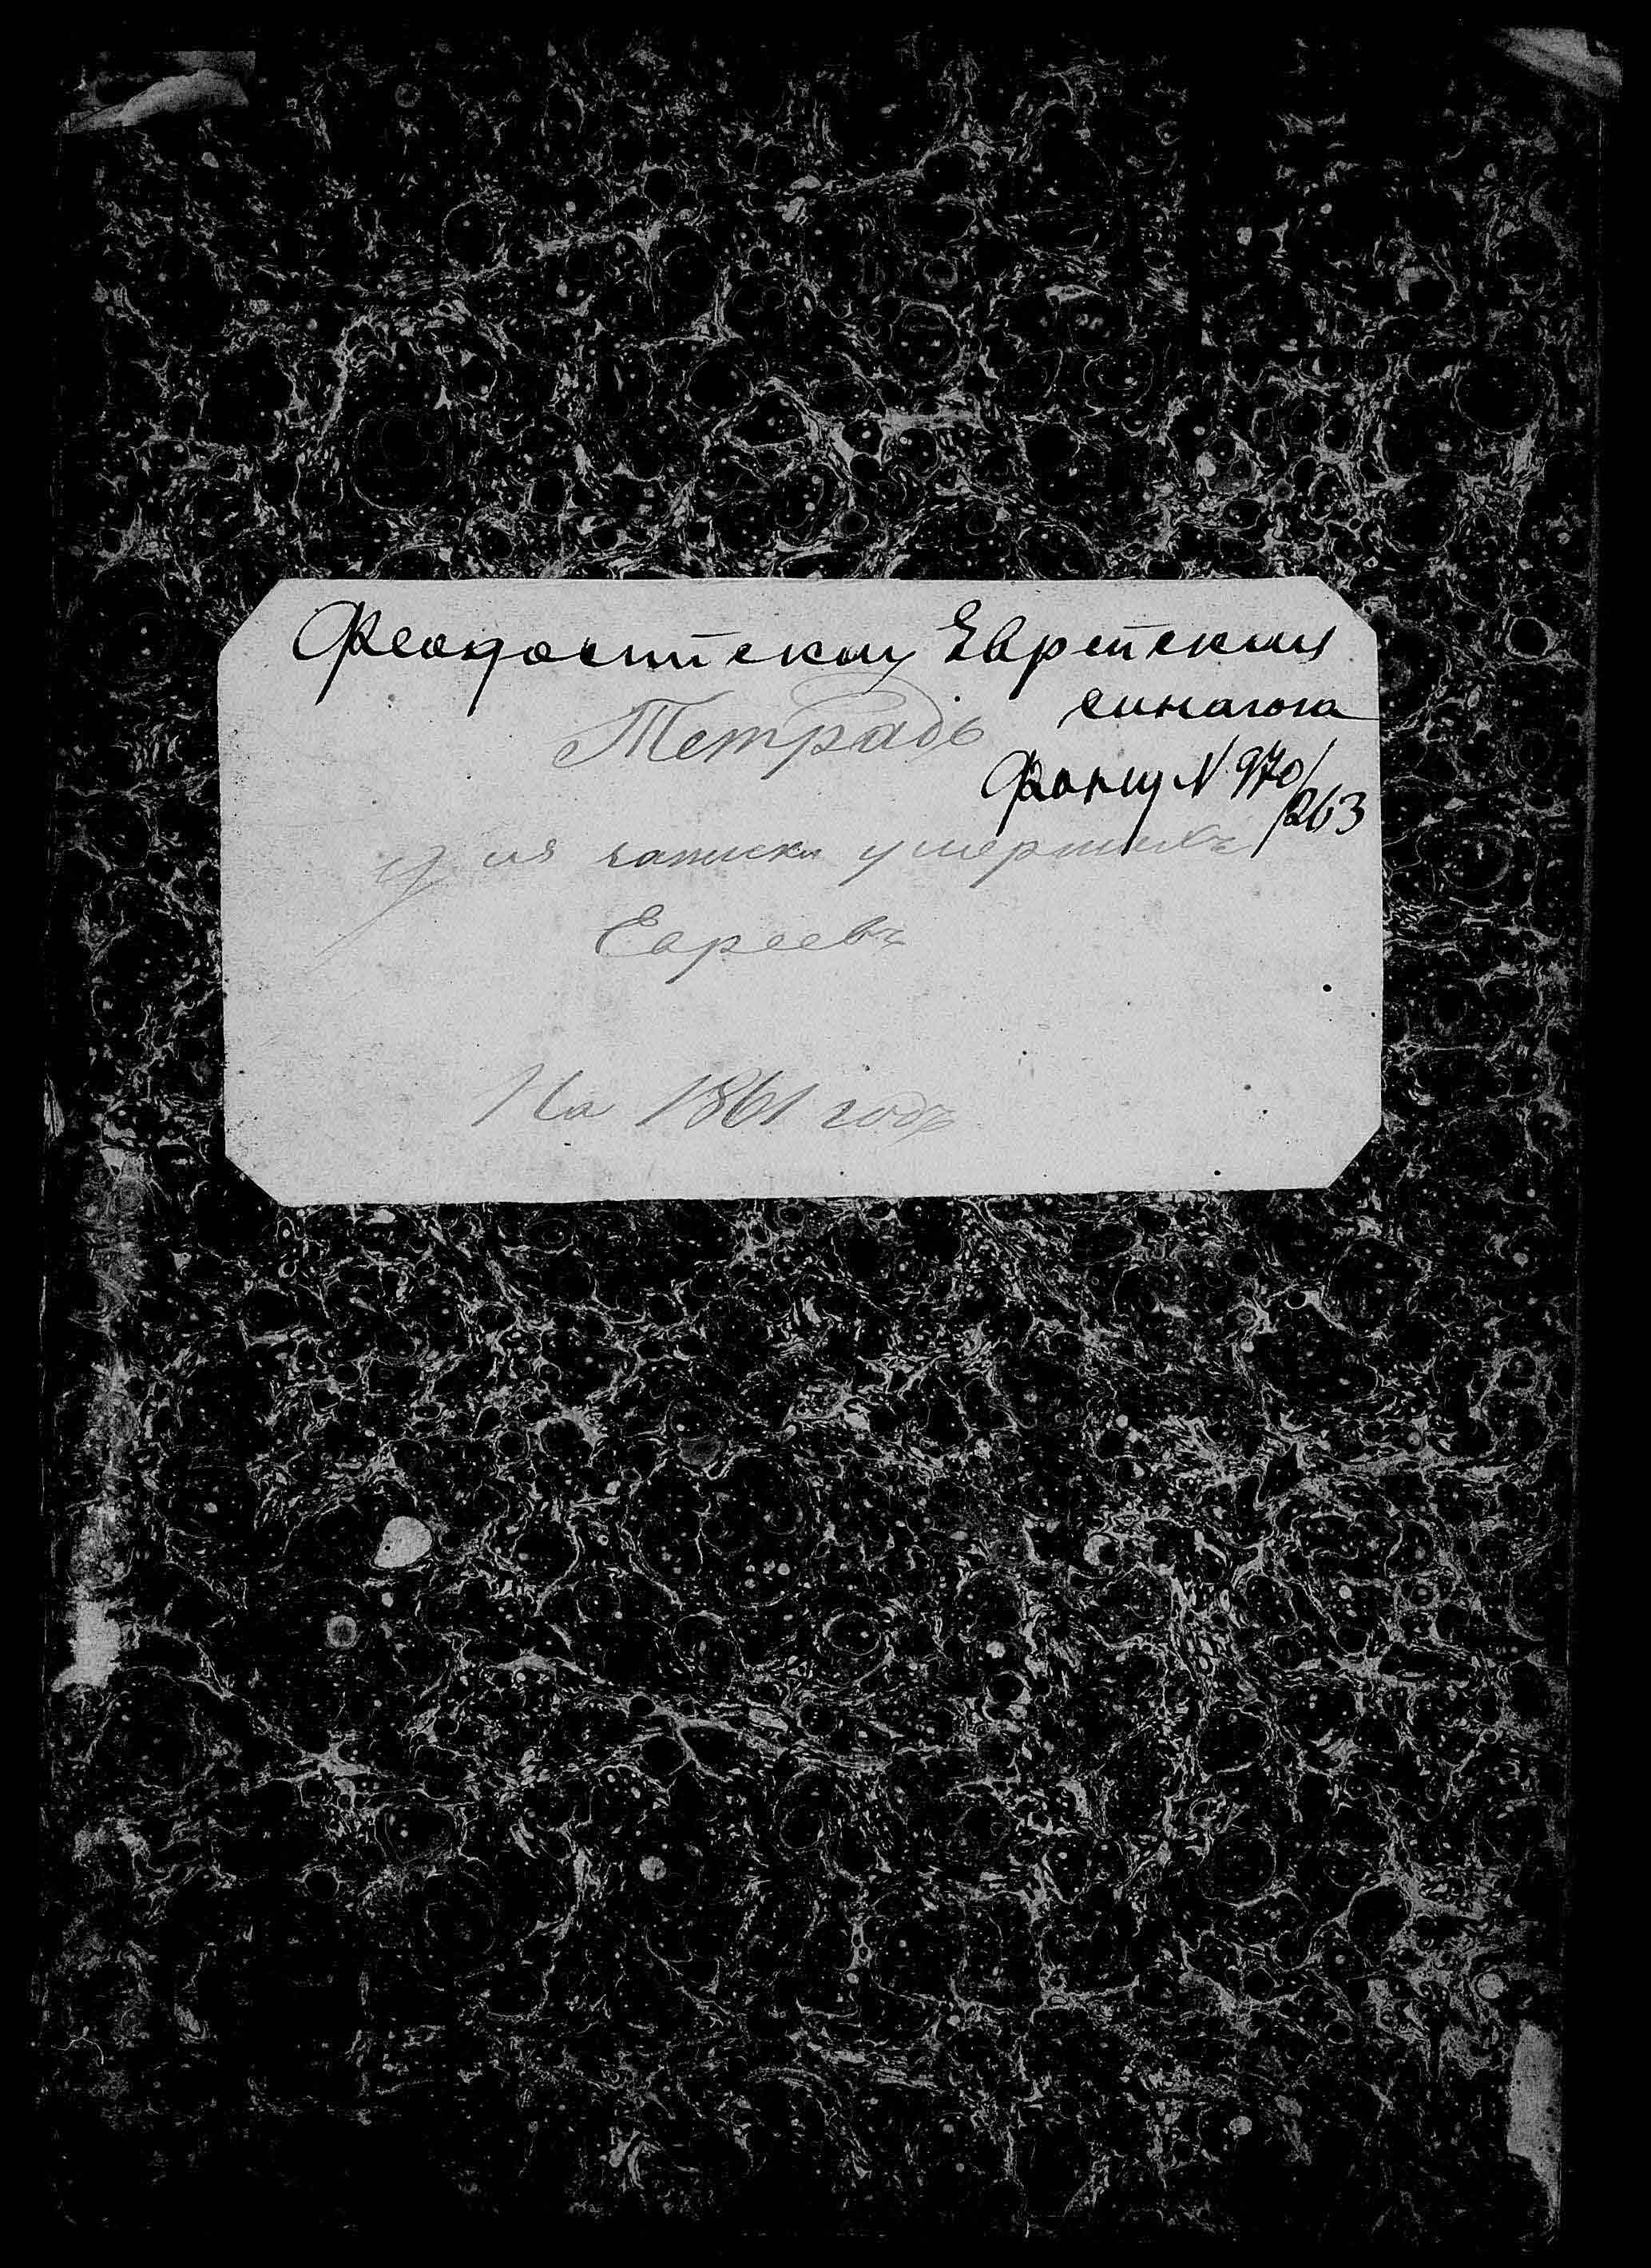 Феодосийскау Еврейския
синагога
Тетрадь
Фонд N 970/263
для записки умершихъ
Евреевъ
На 1861 годъ